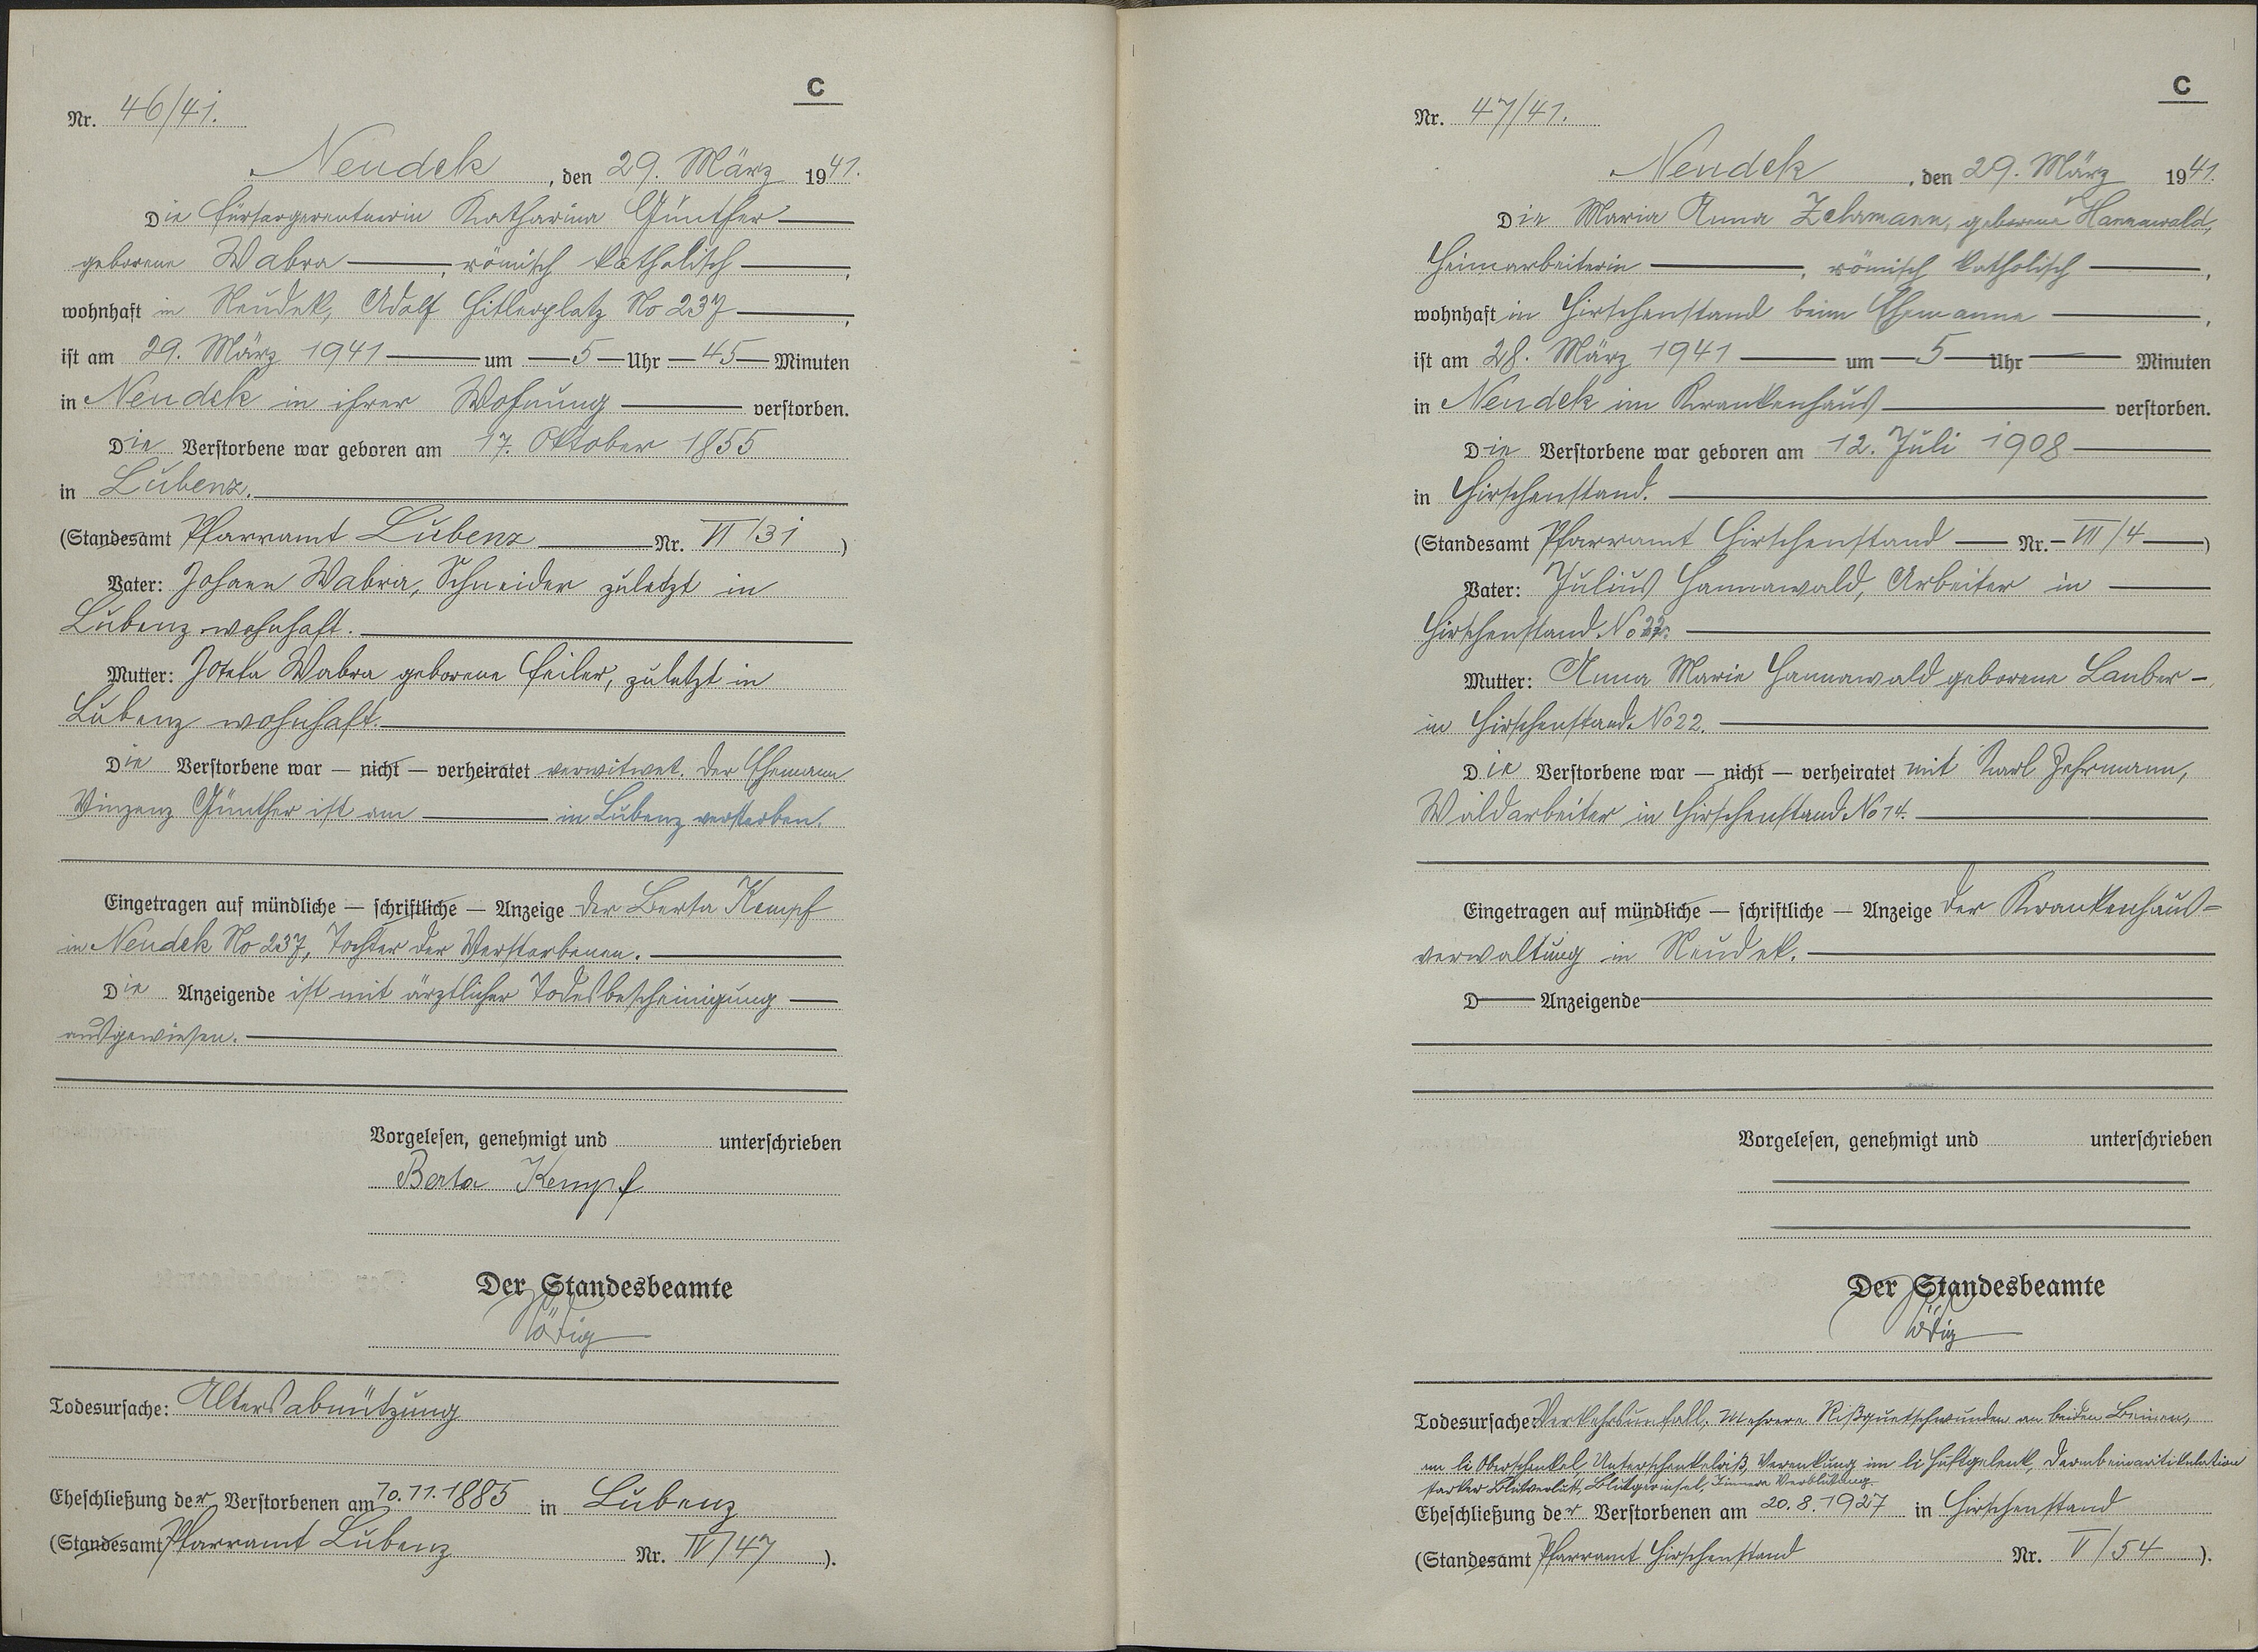 C
Nr. 46/41.
Neudek, den 29. März 1941.
Die Fürsorgerentnerin Katharina Günther
geborene Wabra, römisch katholisch,
wohnhaft in Neudek, Adolf Hitlerplatz No 237,
ist am 29. März 1941 um 5 Uhr 45 Minuten
in Neudek in ihrer Wohnung verstorben.
Die Verstorbene war geboren am 17. Oktober 1855
in Lubenz.
(Standesamt Pfarramt Lubenz Nr. VI/31)
Vater: Johann Wabra, Schneider zuletzt in
Lubenz wohnhaft.
Mutter: Josefa Wabra geborene Feiler, zuletzt in
Lubenz wohnhaft.
Die Verstorbene war — nicht — verheiratet verwitwet. Der Ehemann
Vinzenz Günther ist am in Lubenz verstorben.
Eingetragen auf mündliche — schriftliche — Anzeige der Berta Kempf
in Neudek No 237, Tochter der Verstorbenen.
Die Anzeigende ist mit ärztlicher Todesbescheinigung
ausgewiesen.
Vorgelesen, genehmigt und unterschrieben
Berta Kempf
Der Standesbeamte
Todesursache: Altersabnützung
Eheschließung der Verstorbenen am 10.11.1885 in Lubenz
(Standesamt Pfarramt Lubenz Nr. IV/47).
C
Nr. 47/41.
Neudek, den 29. März 1941.
Die Maria Anna Zehrmann, geborene Hannawald,
Heimarbeiterin, römisch katholisch,
wohnhaft in Hirschenstand beim Ehemanne,
ist am 28. März 1941 um 5 Uhr — Minuten
in Neudek im Krankenhaus verstorben.
Die Verstorbene war geboren am 12. Juli 1908
in Hirschenstand.
(Standesamt Pfarramt Hirschenstand Nr. VII/4)
Vater: Julius Hannawald, Arbeiter in
Hirschenstand No 22.
Mutter: Anna Marie Hannawald geborene Lauber,
in Hirschenstand No 22.
Die Verstorbene war — nicht — verheiratet mit Karl Zehrmann,
Waldarbeiter in Hirschenstand No 14.
Eingetragen auf mündliche — schriftliche — Anzeige der Krankenhaus-
verwaltung in Neudek.
D Anzeigende
Vorgelesen, genehmigt und unterschrieben
Der Standesbeamte
Todesursache: Verkehrsunfall, mehrere Rißquetschwunden an beiden Beinen,
am li Oberschenkel, Verenkung im li Hüftgelenk,
starker Blutverlust, Blutgerinsel, Innere Verblutung.
Eheschließung der Verstorbenen am 20.8.1927 in Hirschenstand
(Standesamt Pfarramt Hirschenstand Nr. V/54).